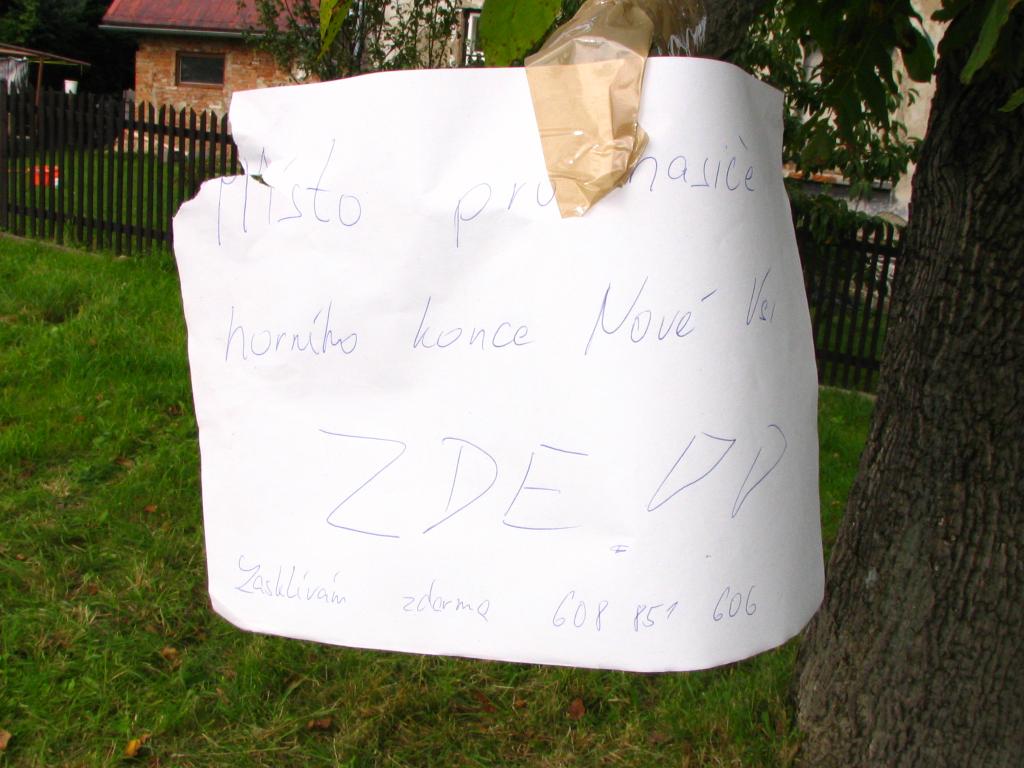 Místo pro hasiče
horního konce Nové Vsi
ZDE !!
Zasklívám zdarma 608 851 606